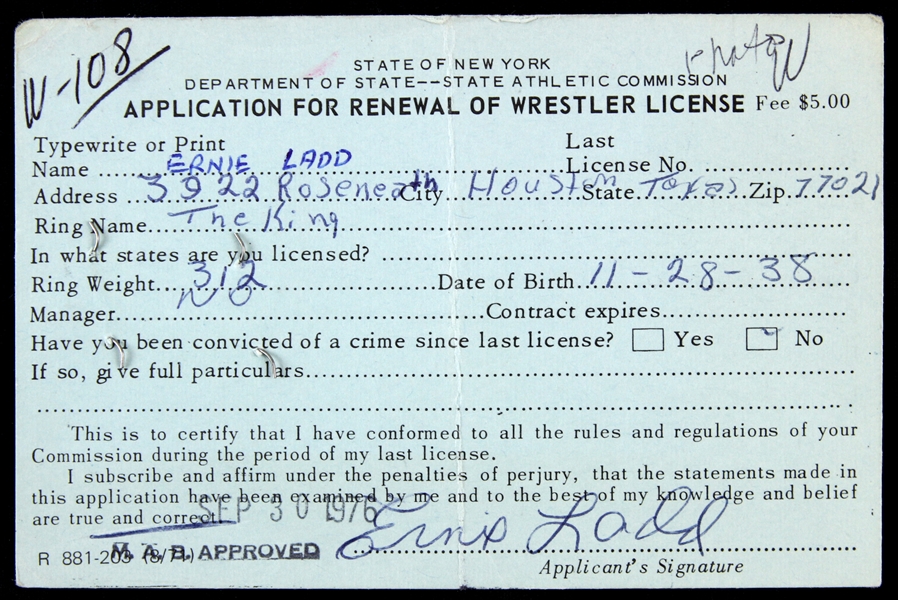 W-108
photo W
STATE OF NEW YORK
DEPARTMENT OF STATE--STATE ATHLETIC COMMISSION
APPLICATION FOR RENEWAL OF WRESTLER LICENSE Fee $5.00
Typewrite or Print Last
Name ERNIE LADD License No.
Address 3922 Roseneath City Houston State Texas Zip 77021
Ring Name The King
In what states are you licensed?
Ring Weight 312 Date of Birth 11-28-38
Manager NO Contract expires
Have you been convicted of a crime since last license? Yes No
If so, give full particulars
This is to certify that I have conformed to all the rules and regulations of your
Commission during the period of my last license.
I subscribe and affirm under the penalties of perjury, that the statements made in
this application have been examined by me and to the best of my knowledge and belief
are true and correct. SEP 30 1976
Ernie Ladd
R 881-203 (8/71) M. A. B. APPROVED
Applicant's Signature